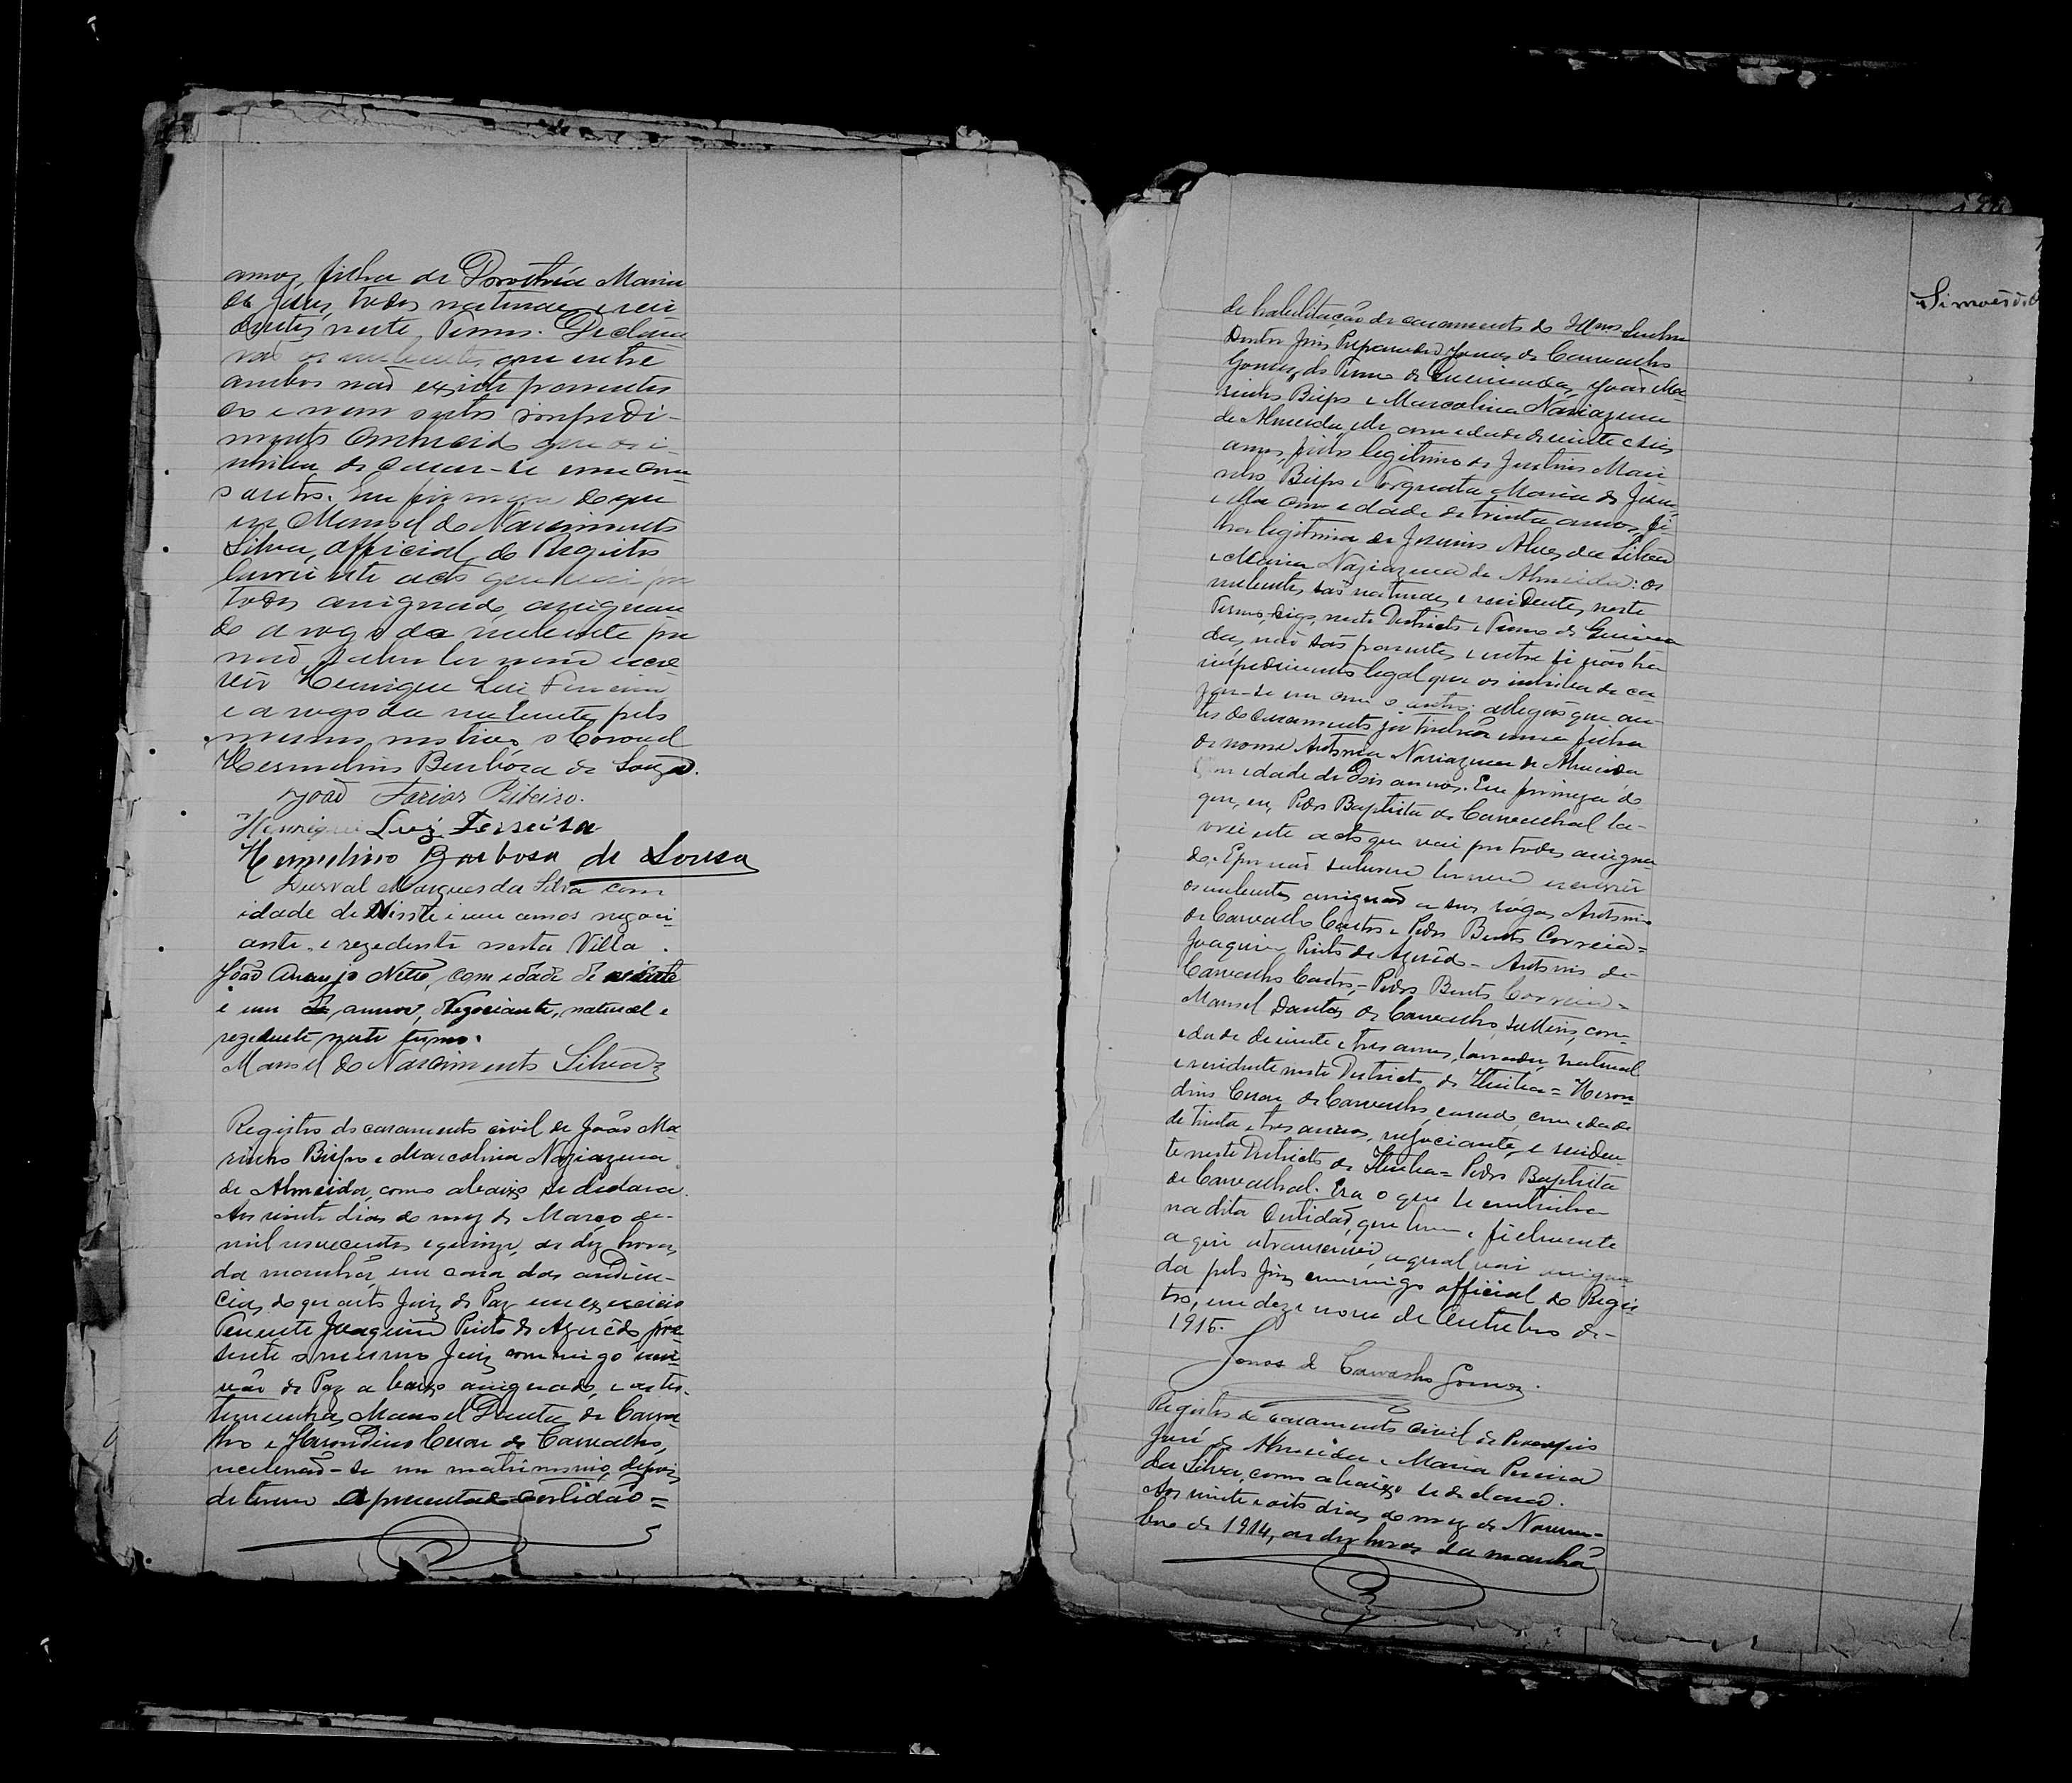 annos, filha de Dorothéa Maria
de Jesus, todos naturaes e resi
dentes neste Termo. Declara
rão os nubentes que entre
ambos não existe parentes
co e nem outro impedi-
mento conhecido que os i-
nhiba de casar-se um com
o outro. Em firmeza do que
eu Manoel do Nascimento
Silva, official do Registro
lavrei este acto que vai por
todos assignado, assignan
do a rogo do nubente por
não saber ler nem escre
ver Henrique Luiz Ferreira
e a rogo da nubente pelo
mesmo motivo, o Coronel
Hermelino Barboza de Souza.
João Farias Ribeiro.
Henrique Luiz Ferreira
Hermelino Barbosa de Sousa
Durval Marques da Silva com
idade de Vinte e um annos negoci
ante e rezedente nesta Villa.
João Araujo Netto, com edade de vinte
e um annos, Negociante, natural e
rezedente neste termo.
Manoel do Nascimento Silva
Registro do casamento civil de João Ma
rinho Bispo e Marcolina Naziazena
de Almeida, como abaixo se declara.
Aos vinte dias do mez de Março de
mil novecentos e quinze, as dez horas
da manhã, em casa das audien-
cias, do quarto Juiz de Paz em exercicio
Tenente Joaquim Pinto de Azevêdo pre
sente o mesmo Juiz commigo escri
vão de Paz a baixo assignado, e as tes-
temunhas Manoel Dantas de Carva
lho e Herondino Cesar de Carvalho,
receberão-se em matrimonio, depois
de terem apresentado certidão =
de habilitação de casamento do Illmo. Senhor
Doutor Juiz Preparador Jonas de Carvalho
Gomes, do Termo de Queimadas, João Ma
rinho Bispo e Marcolina Naziazena
de Almeida, elle com edade de vinte e seis
annos, filho legitimo de Justino Mari
nho Bispo e Torquata Maria de Jesus
e ella com edade de trinta annos, fi
lha legitima de Jesuino Alves da Silva
e Maria Naziazena de Almeida: os
nubentes são naturaes e residentes neste
Termo, digo, neste Districto e Termo de Queima
das, não são parentes e entre si não ha
impedimento legal que os inhiba de ca
zar-se um com o outro; allegão que an-
tes do casamento já tinhão uma filha
de nome Antonia Naziazena de Almeida
com edade de dois annos. Em firmeza do
que, eu, Pedro Baptista de Carvalhal la-
vrei este acto que vai por todos assigna
do. E por não saberem ler nem escrever
os nubentes assignão a seus rógos Antonio
de Carvalho Castro e Pedro Bento Correia=
Joaquim Pinto de Azevêdo - Antonio de
Carvalho Castro - Pedro Bento Correia -
Manoel Dantas de Carvalho, solteiro, com
edade de vinte e tres annos, lavrador, natural
e residente neste Districto de Itiuba= Heron-
dino Cesar de Carvalho, casado, com edade
de trinta e tres annos, negociante, e residen-
te neste Districto de Itiuba= Pedro Baptista
de Carvalhal. Era o que se continha
na dita Certidão, que bem e fielmente
a qui a transcrevi, a qual vai assigna
da pelo Juiz commigo official do Regis
tro, em deze nove de Outubro de-
1915.
Jonas de Carvalho Gomes.
Registro de casamento civil de
José de Almeida e Maria Pereira
da Silva, como abaixo se declara.
Aos vinte e oito dias do mez de Novem-
bro de 1914, as dez horas da manhã
Simões de